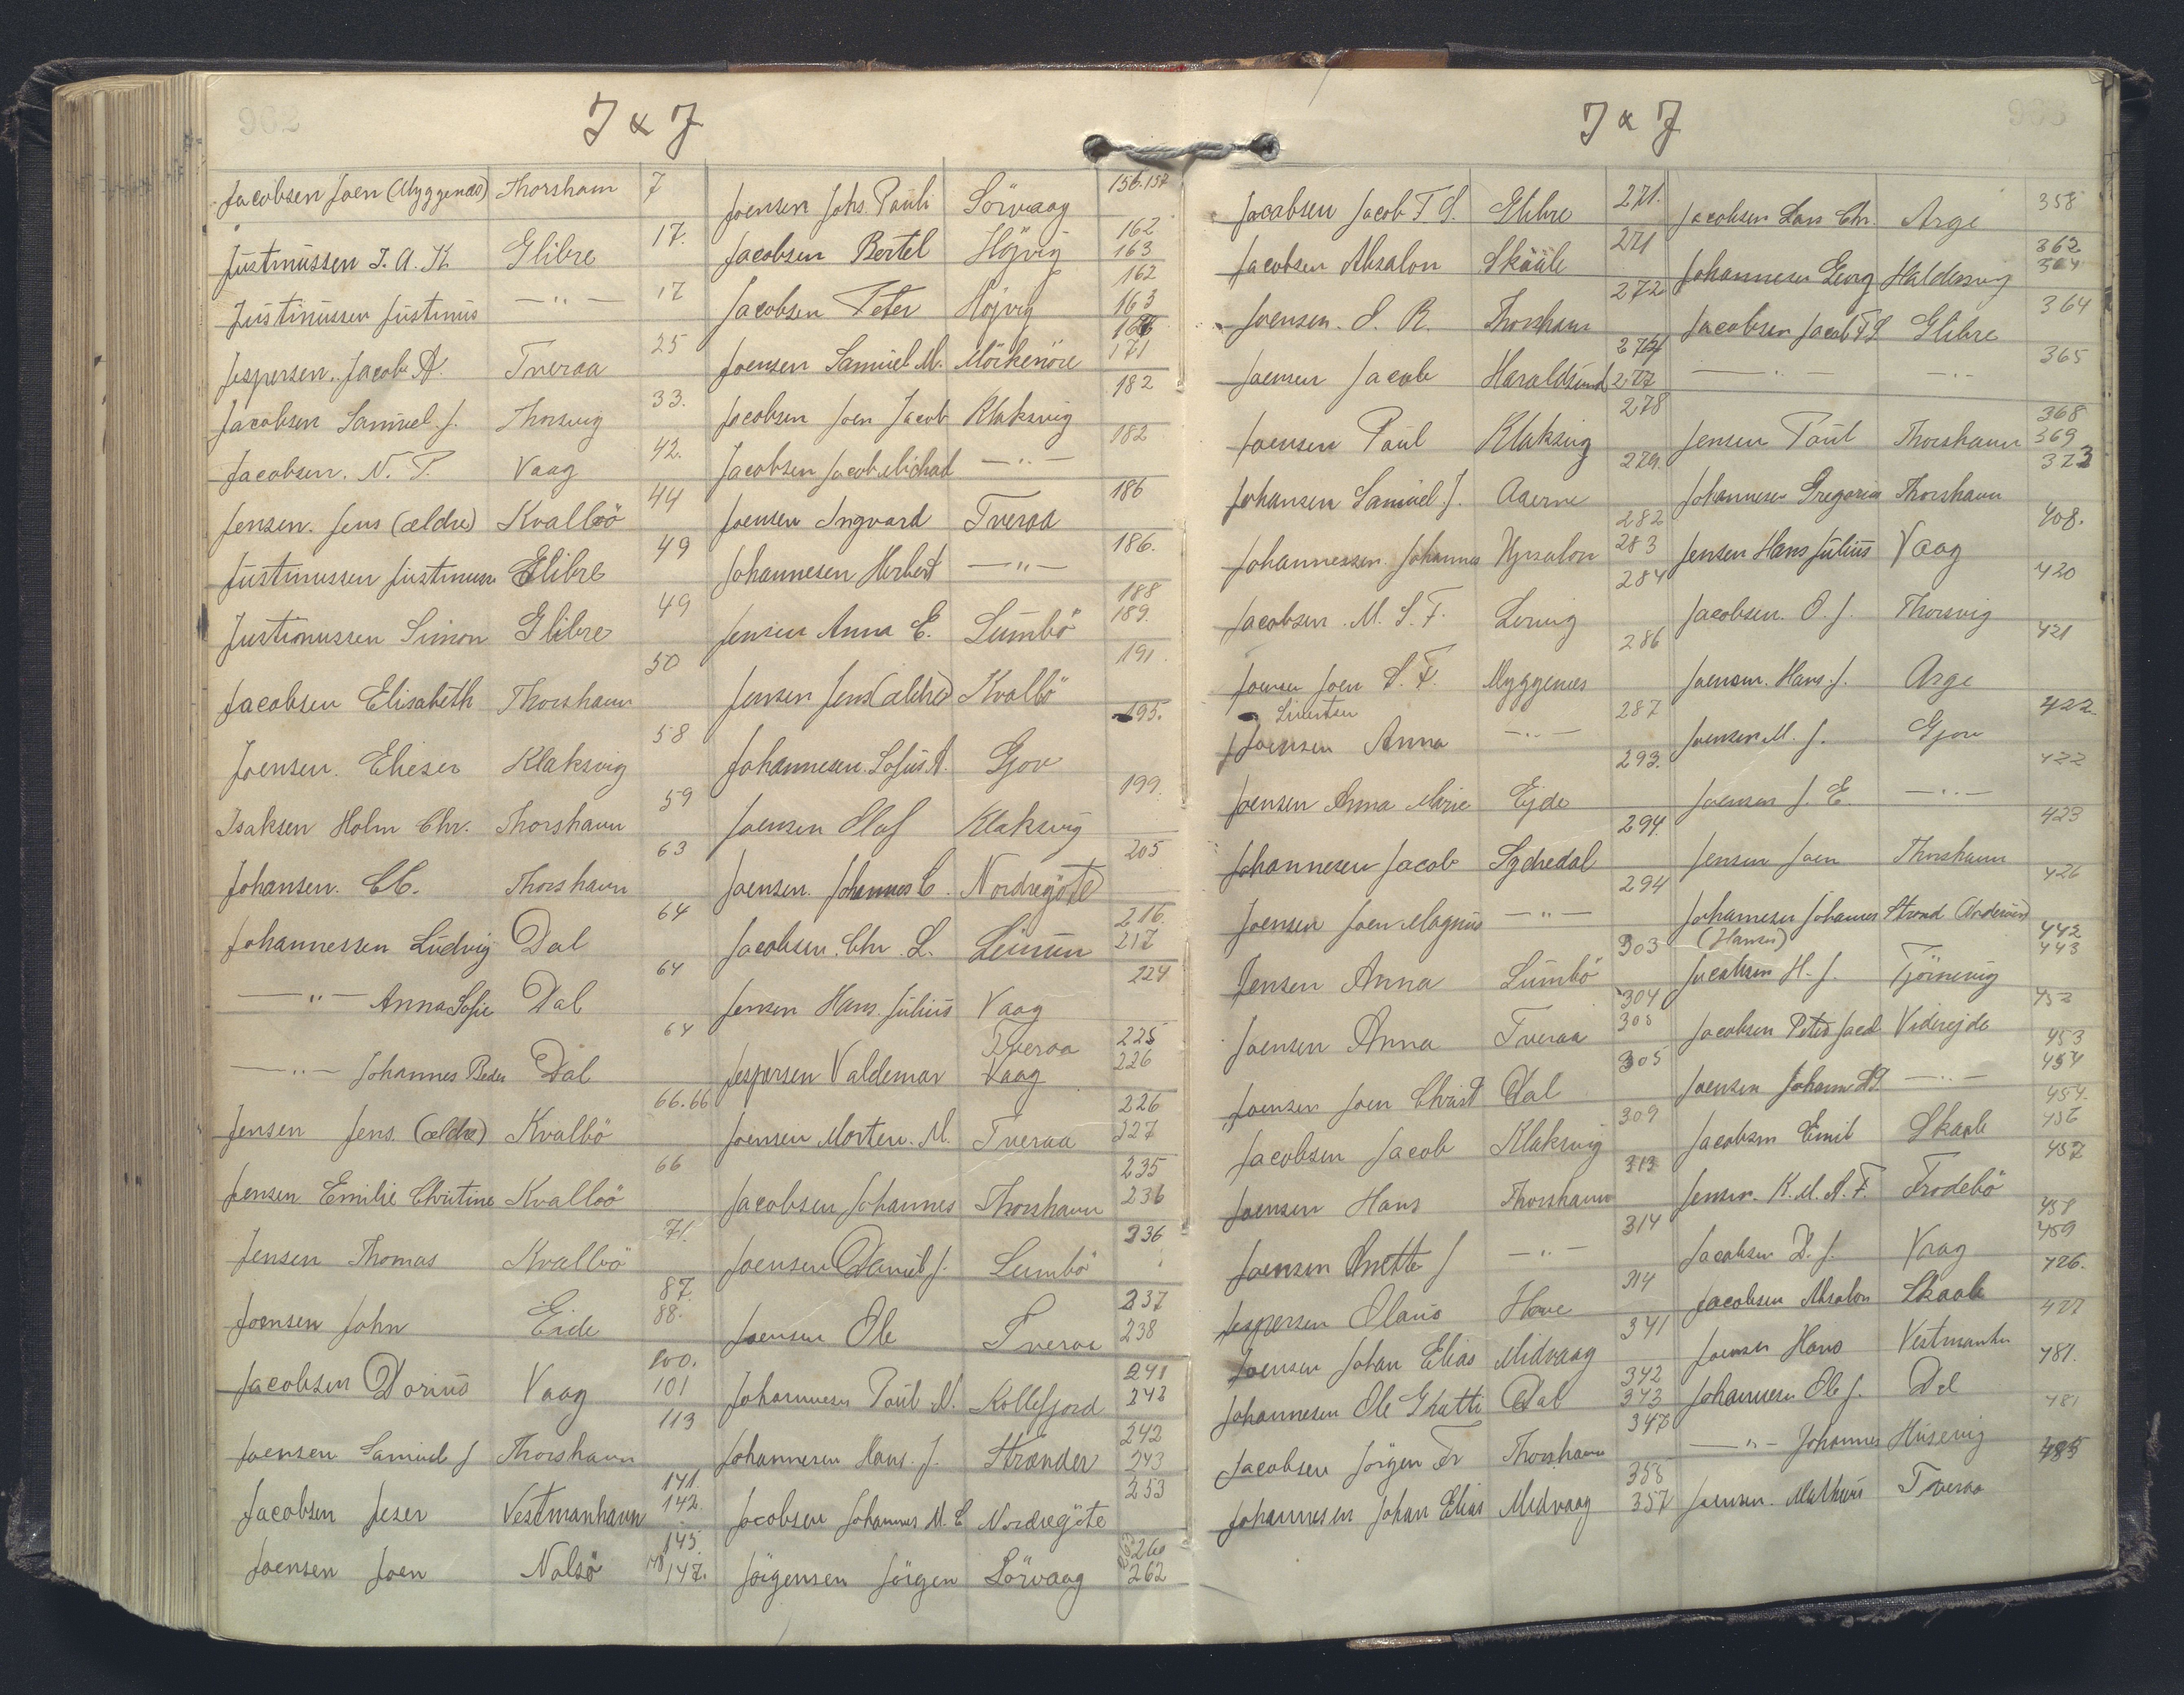 962
I & J
Jacobsen Joen (Myggenæs) Thorshavn 7
Justinussen J. A. K. Glibre 17.
Justinussen Justinus —"— 17
Jespersen. Jacob A. Tveraa 25
Jacobsen Samuel. J. Thorsvig 33.
Jacobsen. N. P. Vaag 42.
Jensen. Jens (ældre) Kvalbö 44
Justinussen Justinus Glibre 49
Justinussen Simon Glibre 49
Jacobsen Elisabeth Thorshavn 50
Joensen. Elieser Klaksvig 58
Isaksen Holm Chr. Thorshavn 59
Johansen. Thorshavn 63
Johannessen Ludvig Dal 64
—"— Anna Sofie Dal 64
—"— Johannes Peder Dal 64
Jensen Jens. (ældre) Kvalbö 66.66
Jensen Emilie Christine Kvalbö 66
Jensen Thomas Kvalbö 71.
Joensen John Eide 87. 88.
Jacobsen Dorius Vaag 100. 101
Joensen Samuel J Thorshavn 113
Jacobsen Jeser Vestmanhavn 141. 142.
Joensen Joen Nolsö 145. 147.
Joensen Johs. Pauli Sörvaag 156.157
Jacobsen Bertel Höjvig 162 163
Jacobsen Peter Höjvig 162 163
Joensen Samuel M. Mörkenöre 171
Jacobsen Joen Jacob Klaksvig 182
Jacobsen Jacob Michael —"— 182
Joensen Ingvard Tveraa 186
Johannesen Herbert —"— 186.
Jensen Anna E. Sumbö 188 189.
Jensen Jens (ældre) Kvalbö 191.
Johannesen. Sofus A. Gjov 195.
Joensen Olaf Klaksvig 199.
Joensen. Johannes C. Nordregöte 205
Jacobsen. Chr. L. 216. 217
Jensen Hans. Julius Vaag 224
Jespersen Valdemar Tveraa Vaag 225 226
Joensen Morten. M. Tveraa 226 227
Jacobsen Johannes Thorshavn 235 236
Joensen Daniel J. Sumbö 236
Joensen Ole Tveraa 237 238
Johannesen Paul N. Kollefjord 241 242
Johannesen Hans. J. Strænder 242 243
Jacobsen Johannes M. E Nordregöte 253
Jörgensen Jörgen Sörvaag 260 262
I & J
Jacobsen Jacob F S. Glibre 271.
Jacobsen Absalon Skaale 271
Joensen. S. R. Thorshavn 272
Joensen Jacob Haraldsund 274 277
Joensen Paul Klaksvig 278
Johansen Samuel J. 279.
Johannessen. Johannes 282 283
Jacobsen. M. S. F. Lervig 284
Joensen Joen S. F. Myggenes 286
Joensen Anna —"— 287
Joensen Anna Marie Ejde 293.
Johannesen Jacob Sydredal 294.
Joensen Joen Magnus —"— 294
Jensen Anna Sumbö 303
Joensen Anna Tveraa 304 305
Joensen Joen Christ Dal 305
Jacobsen Jacob Klaksvig 309
Joensen Hans Thorshavn 313
Joensen Anette J —"— 314
Jespersen Olaus Hove 314
Joensen Johan Elias Midvaag 341
Johannesen Ole Dal 342 343
Jacobsen Jörgen Fr Thorshavn 347
Johannesen Johan Elias Midvaag 355 357
Jacobsen Lars Chr. Arge 358
Johannesen Georg Haldersvig 363
Jacobsen Jacob F S Glibre 364
—"— —"— 365
Jensen Paul Thorshavn 368 369
Johannesen Gregorius Thorshavn 373
Jensen Hans Julius Vaag 408.
Jacobsen. O. J. Thorsvig 420
Joensen. Hans. J. Arge 421
Joensen M. J. Gjov 422
Joensen J. E. —"— 422
Jensen Joen Thorshavn 423
Johannesen Johannes Strond 426
(Hansen)
Jacobsen H. J. Tjörnevig 442 443
Jacobsen Peter Jacob Viderejde 453
Joensen —"— 453 454
Jacobsen Emil Skaale 454. 456
Jensen. K. M. A. F. Frodebö 457
Jacobsen D. J. Vaag 458 459
Jacobsen Absalon Skaale
Joensen Hans Vestmanhn
Johannesen Ole J. Dal 481.
—"— Johannes Husevig 481
Joensen. Mathias Tveraa 485